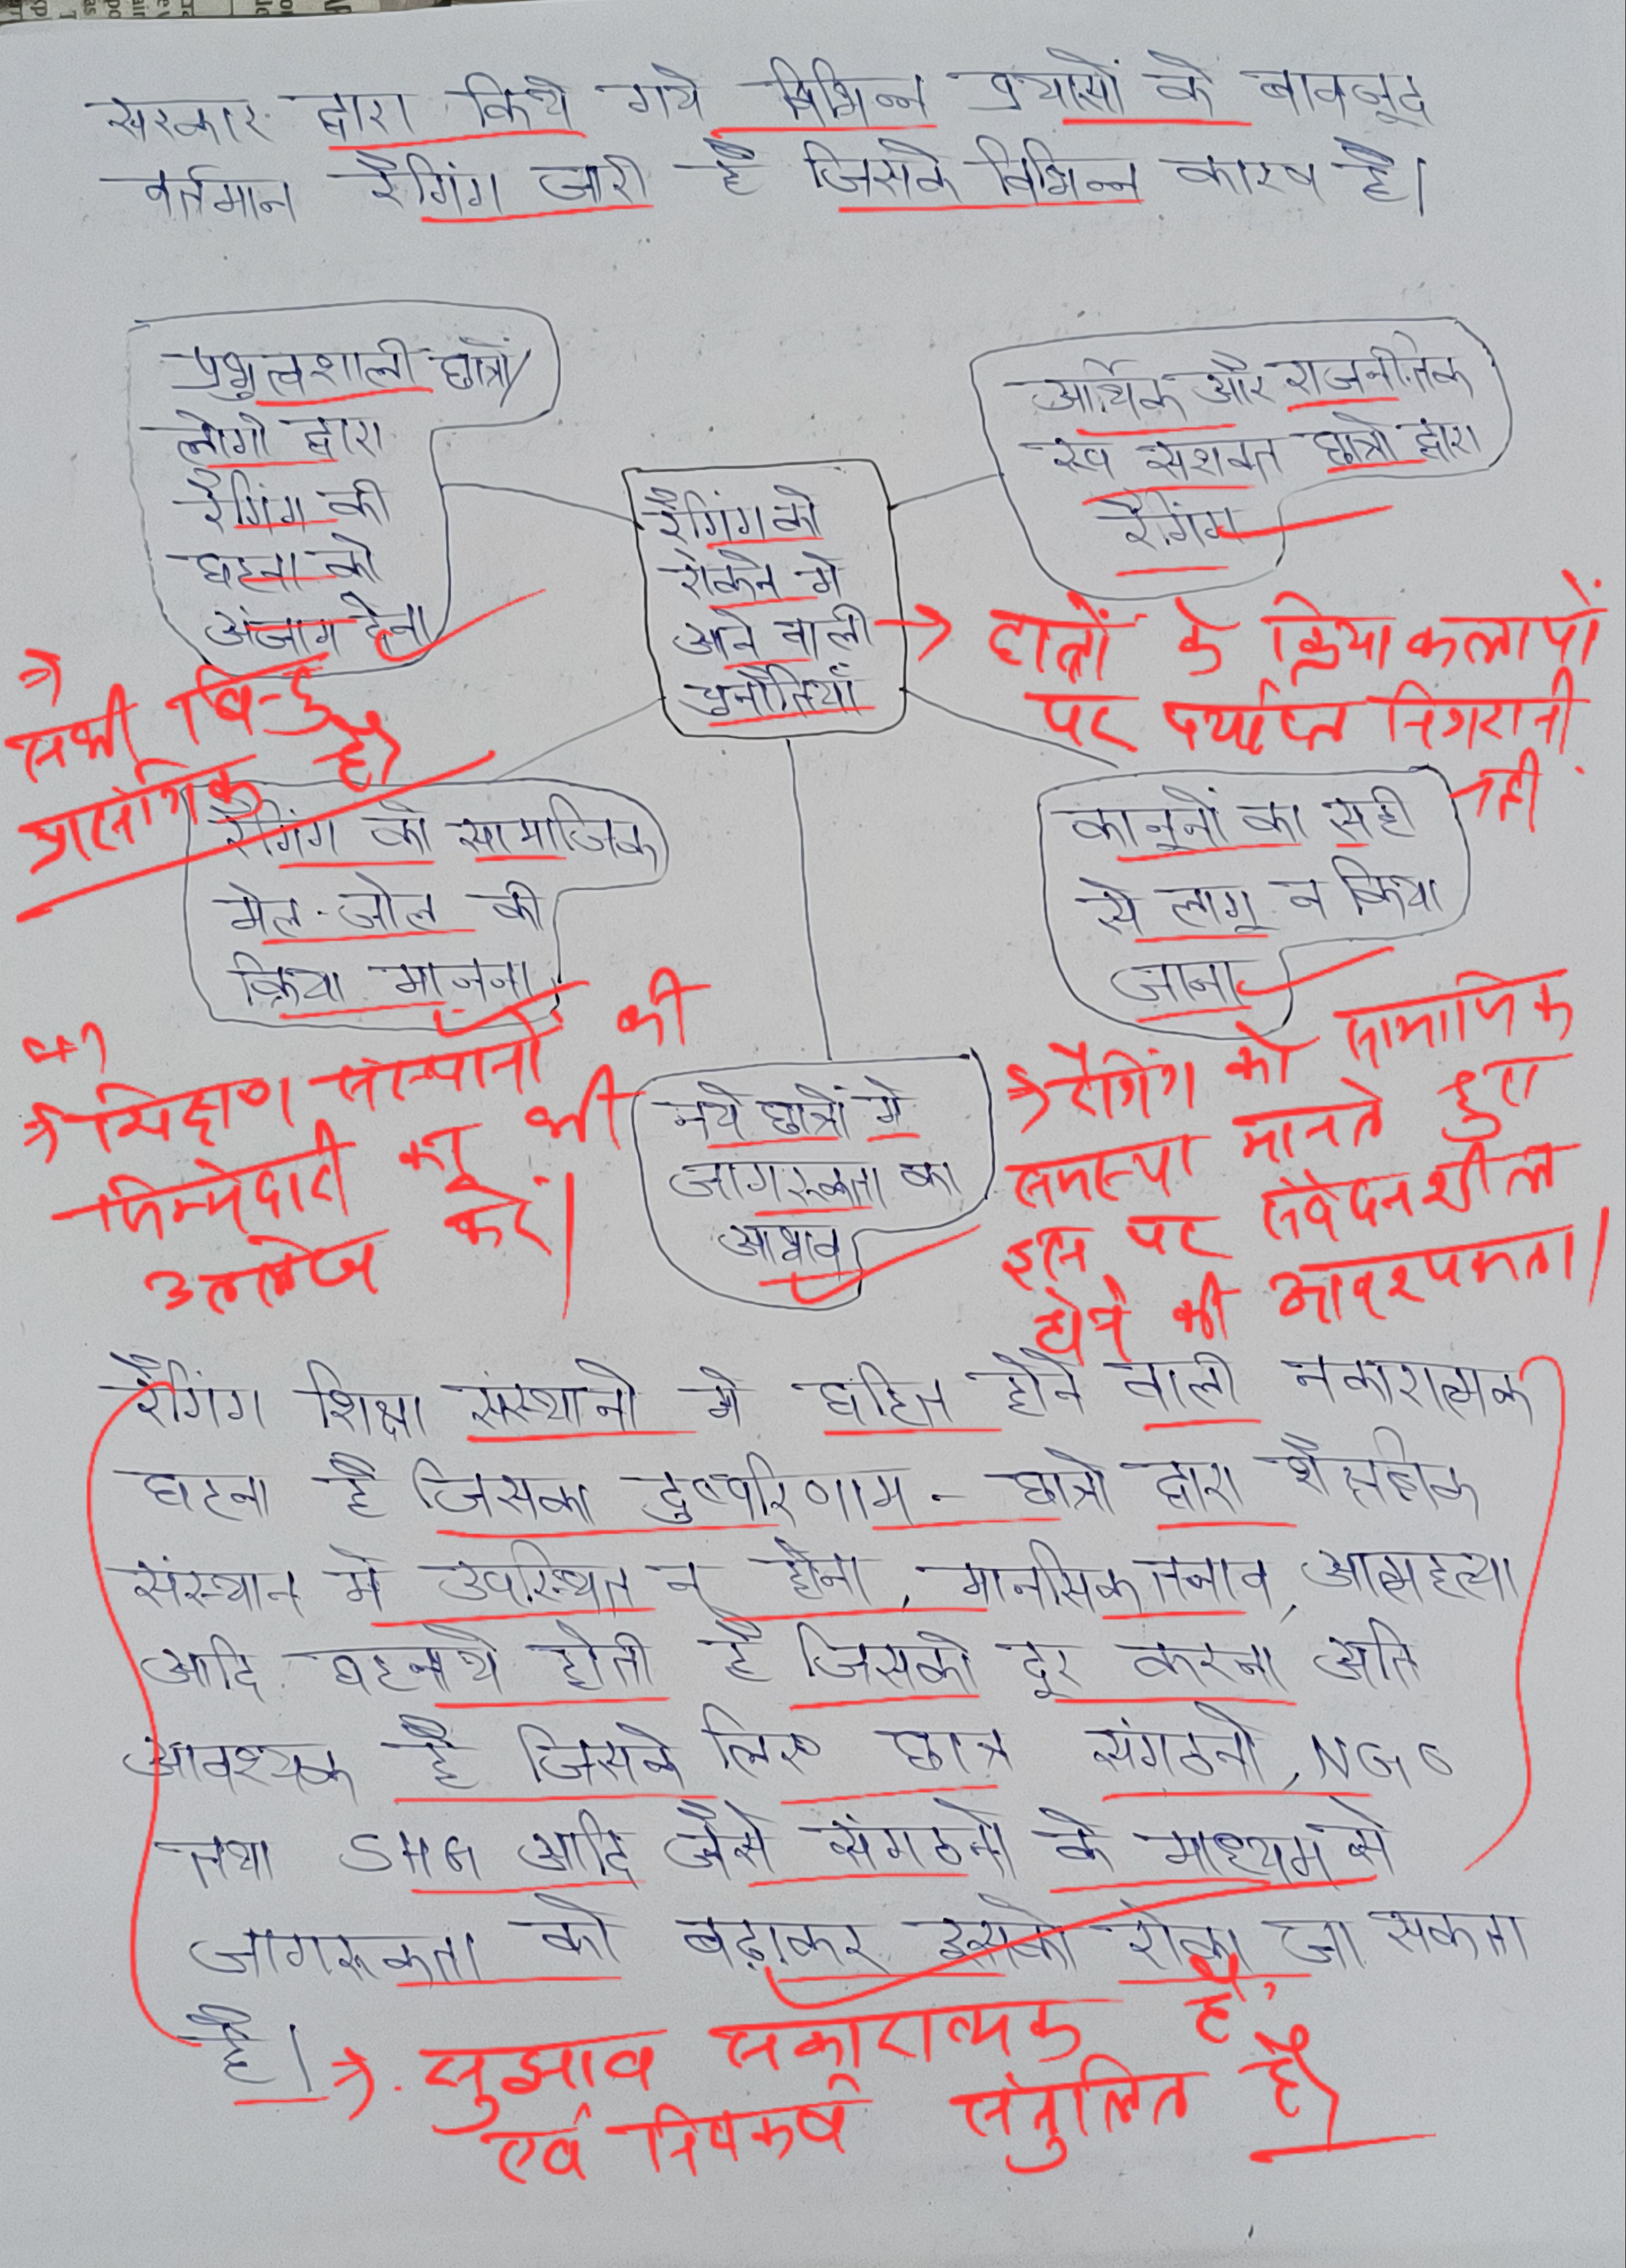 सरकार द्वारा किये गये विभिन्न प्रयासों के बावजूद
वर्तमान रैगिंग जारी है जिसके विभिन्न कारण है।
प्रभुत्वशाली छात्रों/
लोगो द्वारा
रैगिंग की
घटना को
अंजाम देना
आर्थिक और राजनीतिक
रुप सशक्त छात्रो द्वारा
रैगिंग
रैगिंग को
रोकने मे
आने वाली
चुनौतियाँ
→ छात्रों के क्रियाकलापों
पर पर्याप्त निगरानी
नही
→ सभी बिन्दु
प्रासंगिक है।
रैगिंग को सामाजिक
मेल-जोल की
क्रिया मानना
कानूनों का सही
से लागू न किया
जाना
→ शिक्षण संस्थानों की
जिम्मेदारी का भी
उल्लेख करें।
नये छात्रों मे
जागरूकता का
अभाव
→ रैगिंग को सामाजिक
समस्या मानते हुए
इस पर संवेदनशील
होने की आवश्यकता।
रैगिंग शिक्षा संस्थानो मे घटित होने वाली नकारात्मक
घटना है जिसका दुष्परिणाम - छात्रो द्वारा शैक्षणिक
संस्थान मे उपस्थित न होना, मानसिक तनाव, आत्महत्या
आदि घटनाये होती है जिसको दूर करना अति
आवश्यक है जिसके लिए छात्र संगठनो, NGO
तथा SHG आदि जैसे संगठनो के माध्यम से
जागरूकता को बढ़ाकर इसको रोका जा सकता
है।
→ सुझाव सकारात्मक है,
एवं निष्कर्ष संतुलित है।